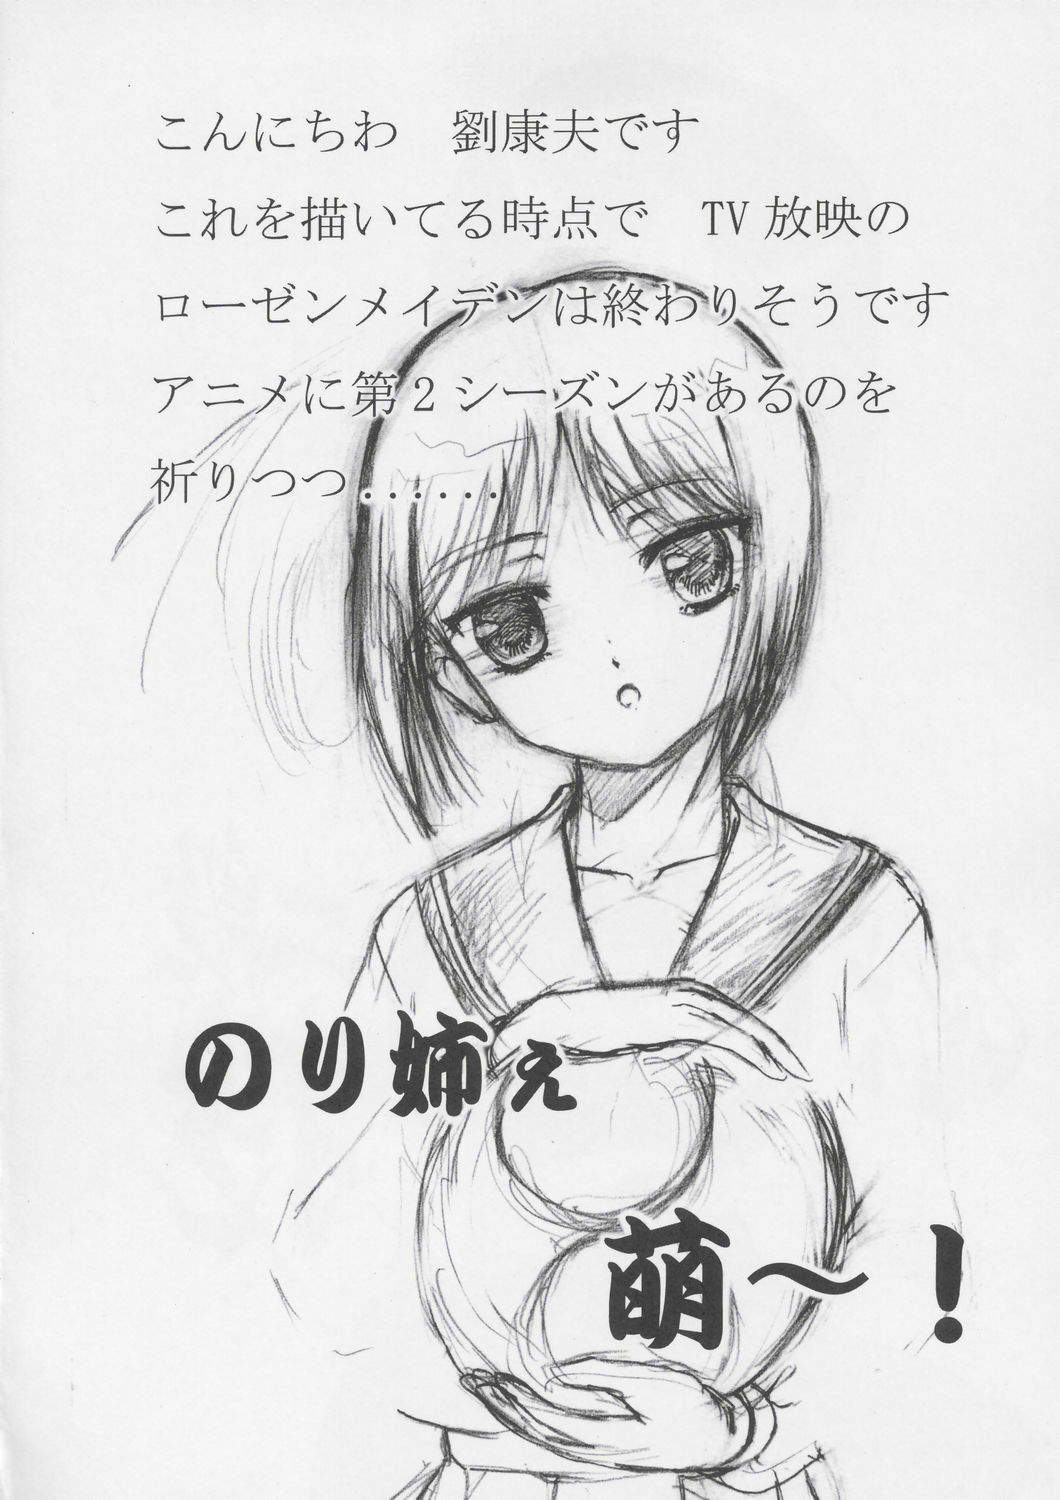 こんにちわ　劉康夫です
これを描いてる時点で　TV放映の
ローゼンメイデンは終わりそうです
アニメに第2シーズンがあるのを
祈りつつ......
のり姉ぇ
萌〜！